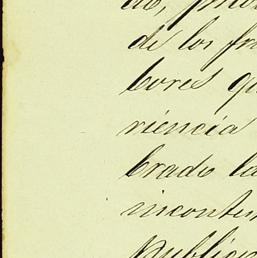 de los fru
bores qu
riencia
brado la
incontes
Publicon